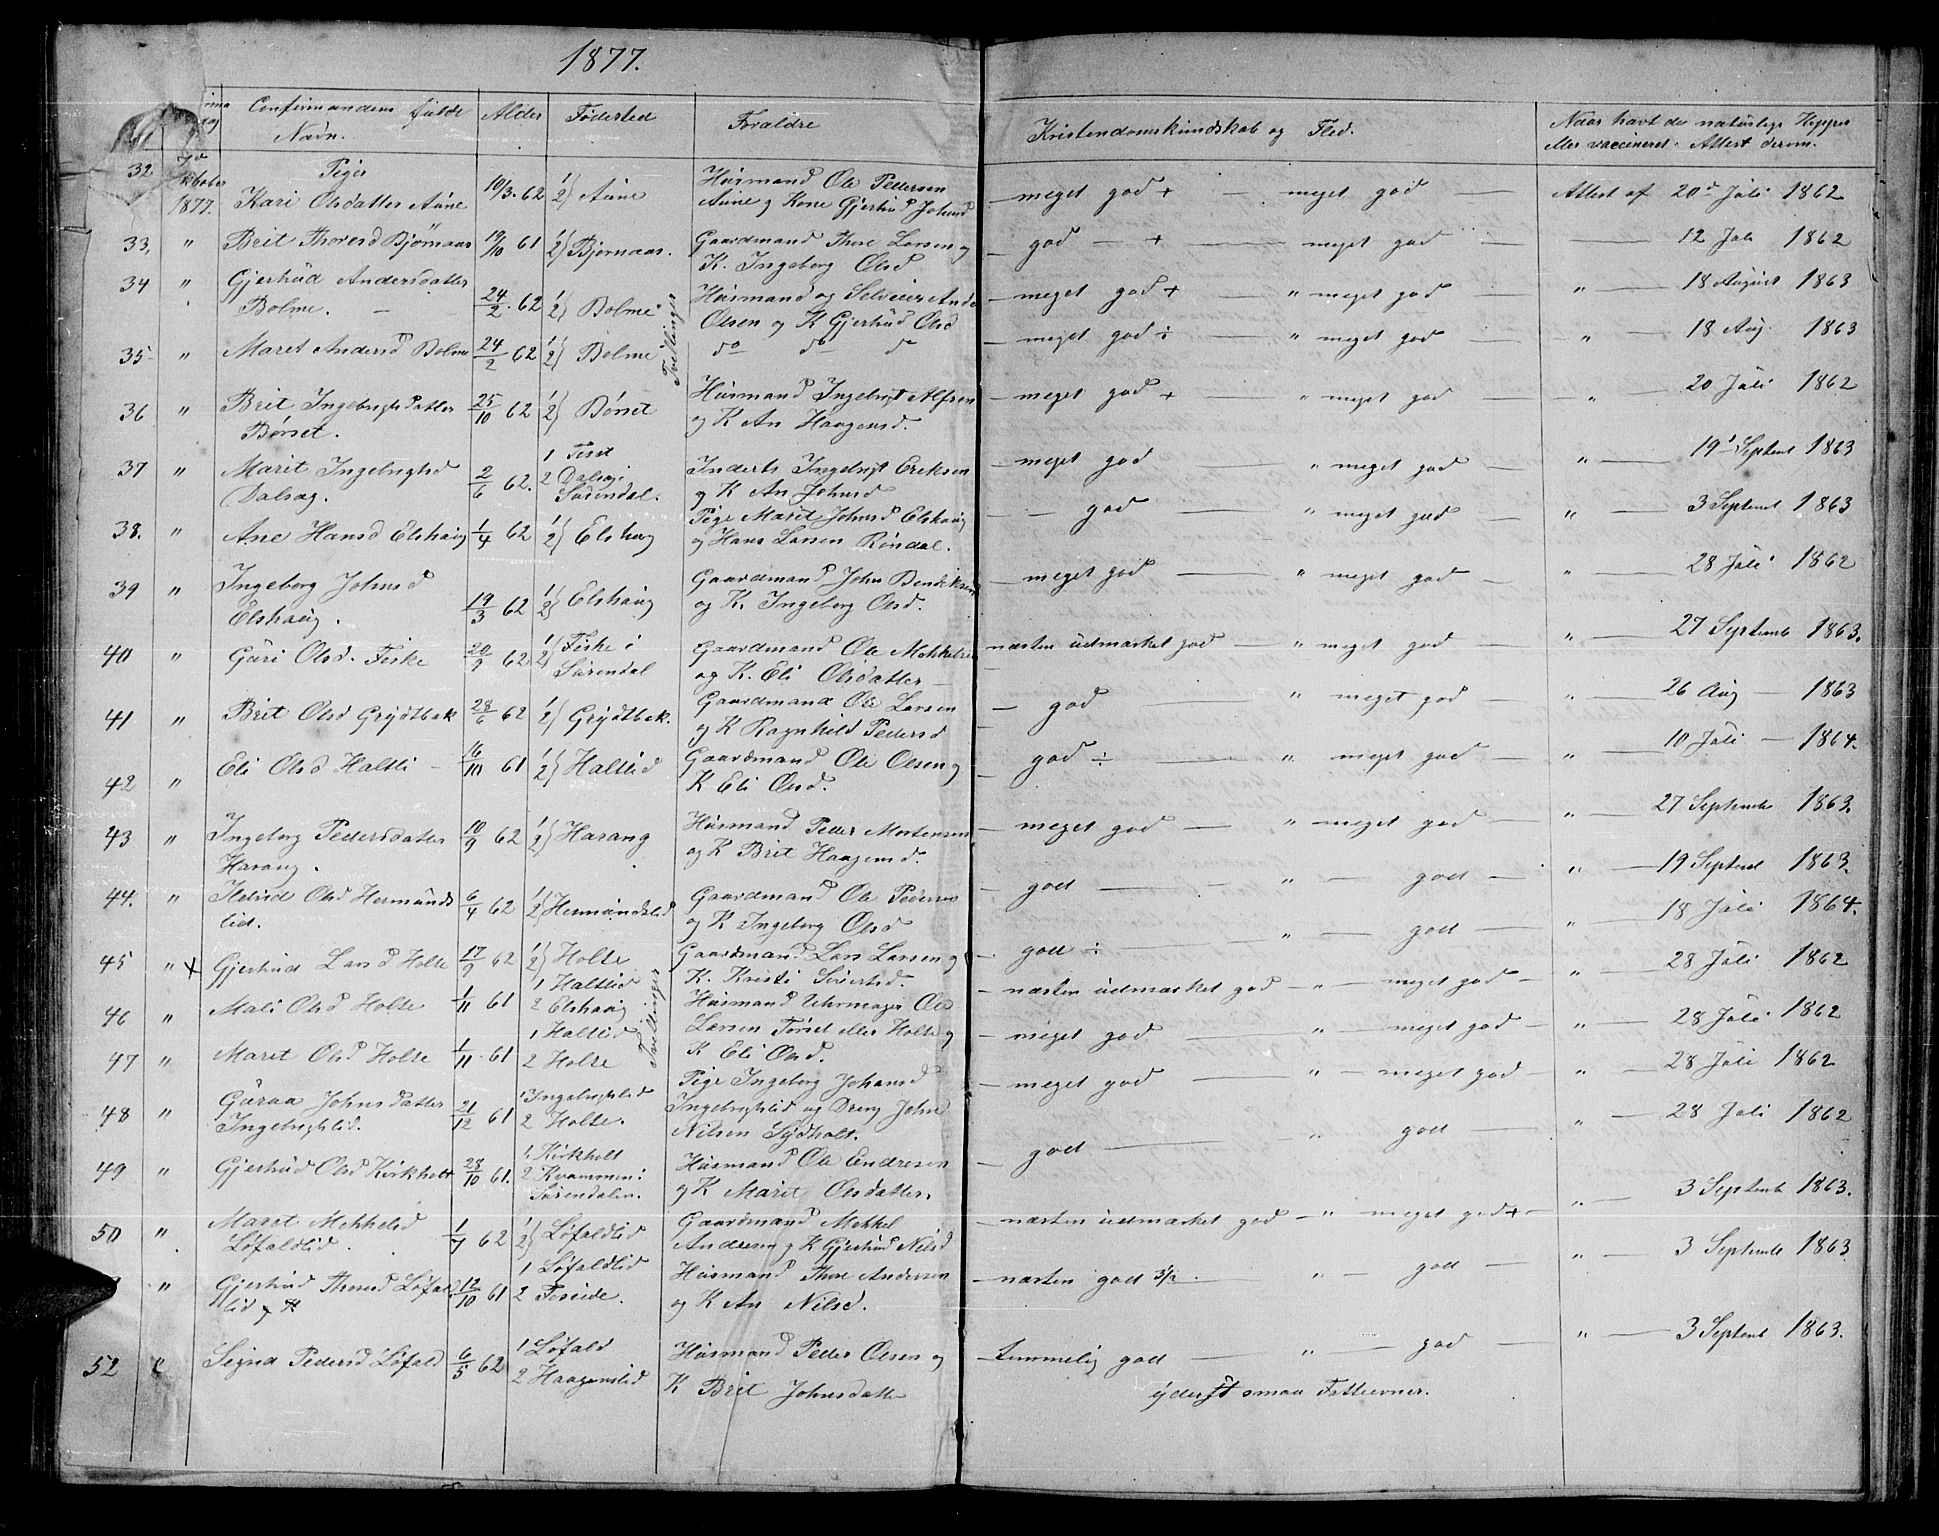 1877.
Confirmandens fulde Navn. Alder Fødested Forældre Kristendomskundskab og Flid. Naar havt de naturlige Kopper eller vaccineret. Attest derom.
Piger
32. 1877. Kari Olsdatter Aüne 10/3. 62 1 2) Aüne Hüsmand Ole Pedersen Aüne og Kone Gjerhüd Johnsd — meget god + — meget god — Attest af 20de Jüli 1862
33. " Brit Thoresd Bjørnaas 19/10 61 1 2) Bjørnaas. Gaardmand Thore Larsen og K. Ingeborg Olsd — god — + — meget god — 12 Jüli 1862
34 " Gjerhüd Andersdatter Bolme. 24/2. 62 1 2) Bolme Tvillinger Hüsmand og Selveier Anders Olsen og K Gjerhüd Olsd — meget god + — " meget god — " 18 Aügust 1863
35 " Maret Andersd Bolme 24/2 62 1 2) Bolme do do do — meget god ÷ — " meget god — " 18 Aug. 1863
36 " Brit Ingebrigtsdatter Børset. 25/10 62 1 2) Børset Hüsmand Ingebrigt Alfsen og K An Haagensd. — meget god + — " meget god — " 20 Jüli 1862
37 " Marit Ingebrigtsd Dalsæg. 2/6 62. 2 Dalsæg i Sürendal. Inderts Ingebrigt Eriksen og K An Johnsd — meget god " meget god — " 19 Septemb 1863
38. " Ane Hansd Elshaüg 1/4 62 1 2) Elshaug Pige Marit Johnsd Elshaüg og Hans Larsen Røndal. — god — " meget god — " 3 Septemb 1863
39 " Ingeborg Johnsd Elshaüg. 19/3 62 1 2) Elshaüg Gaardmand John Bendiksen og K. Ingeborg Olsd. — meget god — " meget god — " 28 Jüli 1862
40 " Güri Olsd. Fiske 20/9 62 1 2) Fiske i Sürendal Gaardmand Ole Mekkelsen og K. Eli Olsdatter — næsten üdmærket god — " meget god — " 27 Septemb 1863.
41 " Brit Olsd Grydtbæk 28/6 62 1 2) Grydtbæk. Gaardmand Ole Larsen og K Ragnhild Pedersd — god " meget god — " 26 Aug — 1863
42 " Eli Olsd Haltli — 16/10 61 1 2) Haltlid Gaardmand Ole Olsen og K Eli Olsd. — god ÷ — " meget god — " 10 Jüli — 1864.
43 " Ingeborg Pedersdatter Harang. 10/9 62 1 2) Harang Hüsmand Peder Mortensen og K Brit Haagensd. — meget god — " meget god — " 27 Septemb 1863.
44. " Ildrid Olsd Hermündslid. 6/4 62 1 2) Hermündslid Gaardmand Ole Pedersen og K Ingeborg Olsd — god — " — god — " 19 Septemb 1863.
45 " x Gjerhüd Larsd Holte 17/9 62 1 2) Holte Gaardmand Lars Larsen og K. Kristi Siversd. — god ÷ — " — god — " 18 Jüli 1864.
46 " Mali Olsd Holte 1/11 61 1 Haltlid 2 Elshaüg Tvillinger Hüsmand Uhrmager Ole Larsen Tørset eller Holte og K Eli Olsd. — næsten üdmærket god — " — meget god — " 28 Jüli 1862
47 " Maret Olsd Holte 1/11. 61 1 Haltlid 2 Holte — meget god — " — meget god — " 28 Jüli 1862
48 " Güraa Johnsdatter Ingebrigtslid. 21/12 61 1 Ingebrigtslid 2 Holte. Pige Ingeborg Johansd Ingebrigtslid og Dreng John Nilsen Sydholt. — meget god — " — meget god — " 28 Jüli 1862
49 " Gjerhüd Olsd Kirkholt 28/10 61. 1 Kirkholt 2 Kvammen i Sürendalen. Hüsmand Ole Endresen og K Maret Olsdatter. — god — " god — " 28 Jüli 1862
50 " Maret Mekkelsd Løfaldlid. 1/7 62 1 2) Løfaldlid Gaardmand Mekkel Andersen og K Gjerhüd Nilsd — næsten üdmærket god — " meget god + — " 3 Septemb 1863.
" Gjerhüd Thoresd Løfaldlid 12/10 61 1 Løfaldlid 2 Hüsmand Thore Andersen og K An Nilsd. — næsten god 3½ — " — god — " 3 Septemb 1863
52 Signe Pedersd Løfald 6/5 62 1 Løfald 2 Haagenslid Hüsmand Peder Olsen og K Brit Johnsdatter — temmelig god — " — god — " 3 Septemb 1863.
yderst smaa Fatteevner.